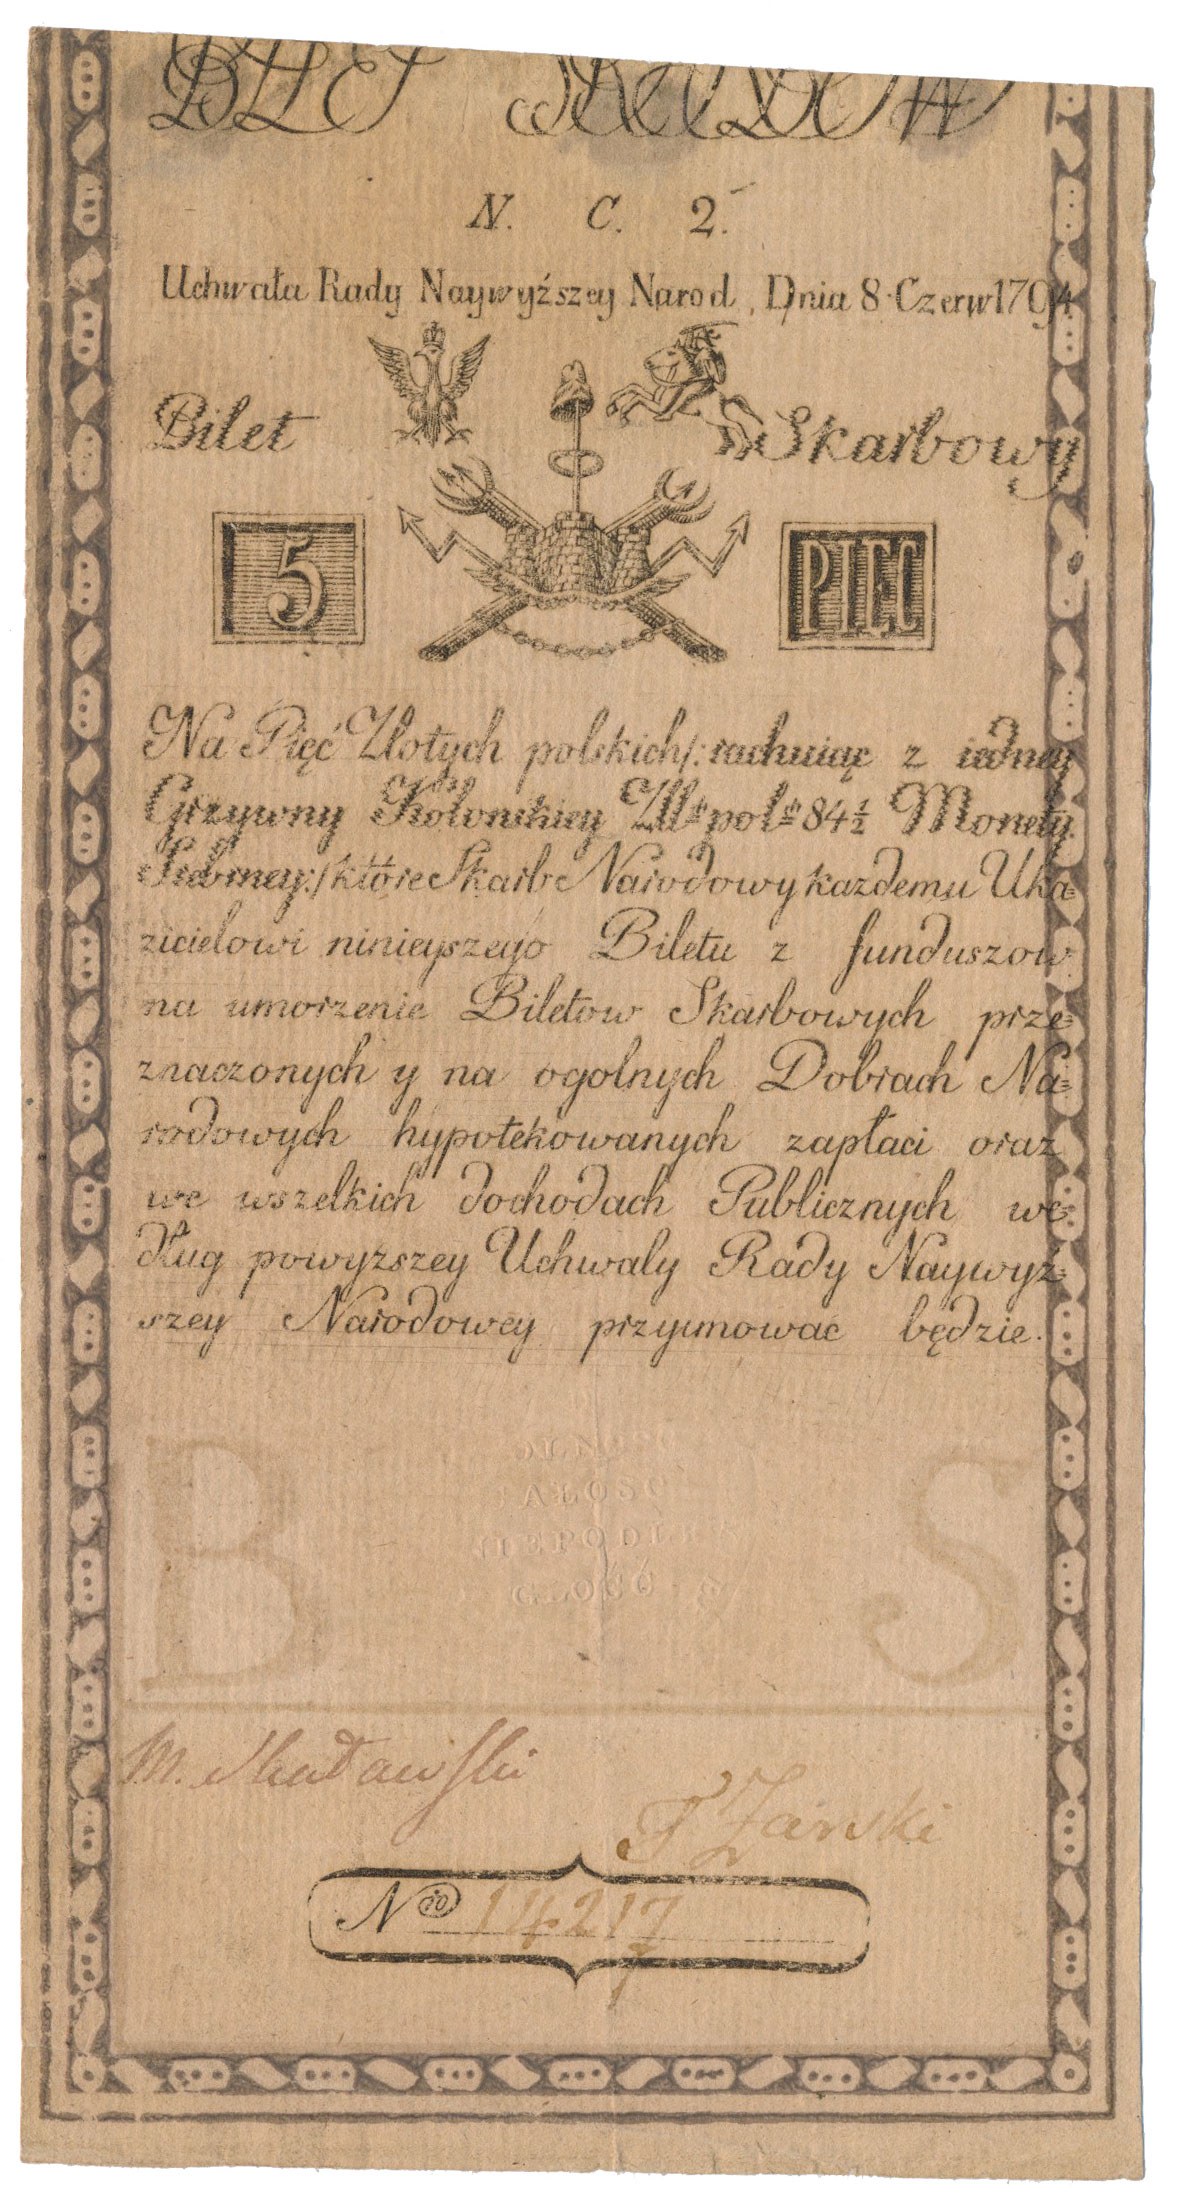 BILET SKARBOWY
N. C. 2.
Uchwała Rady Naywyźszey Narod, Dnia 8 Czerw 1794
Bilet Skarbowy
5 PIĘC
Na Pięć Złotych polskich/: rachuiąc z iedney
Grzywny Kolonskiey Złł: pol: 84½ Monety
Srebrney:/ które Skarb Narodowy kazdemu Uka=
zicielowi ninieyszego Biletu z funduszow
na umorzenie Biletow Skarbowych prze=
znaczonych y na ogolnych Dobrach Na=
rodowych hypotekowanych zapłaci oraz
we wszelkich dochodach Publicznych we=
dług powyzszey Uchwaly Rady Naywyż=
szey Narodowey przyimowac będzie.
B S
OLNOSC
CAŁOSC
NIEPODLE
GŁOSC
M.
F Żarski
No 14217